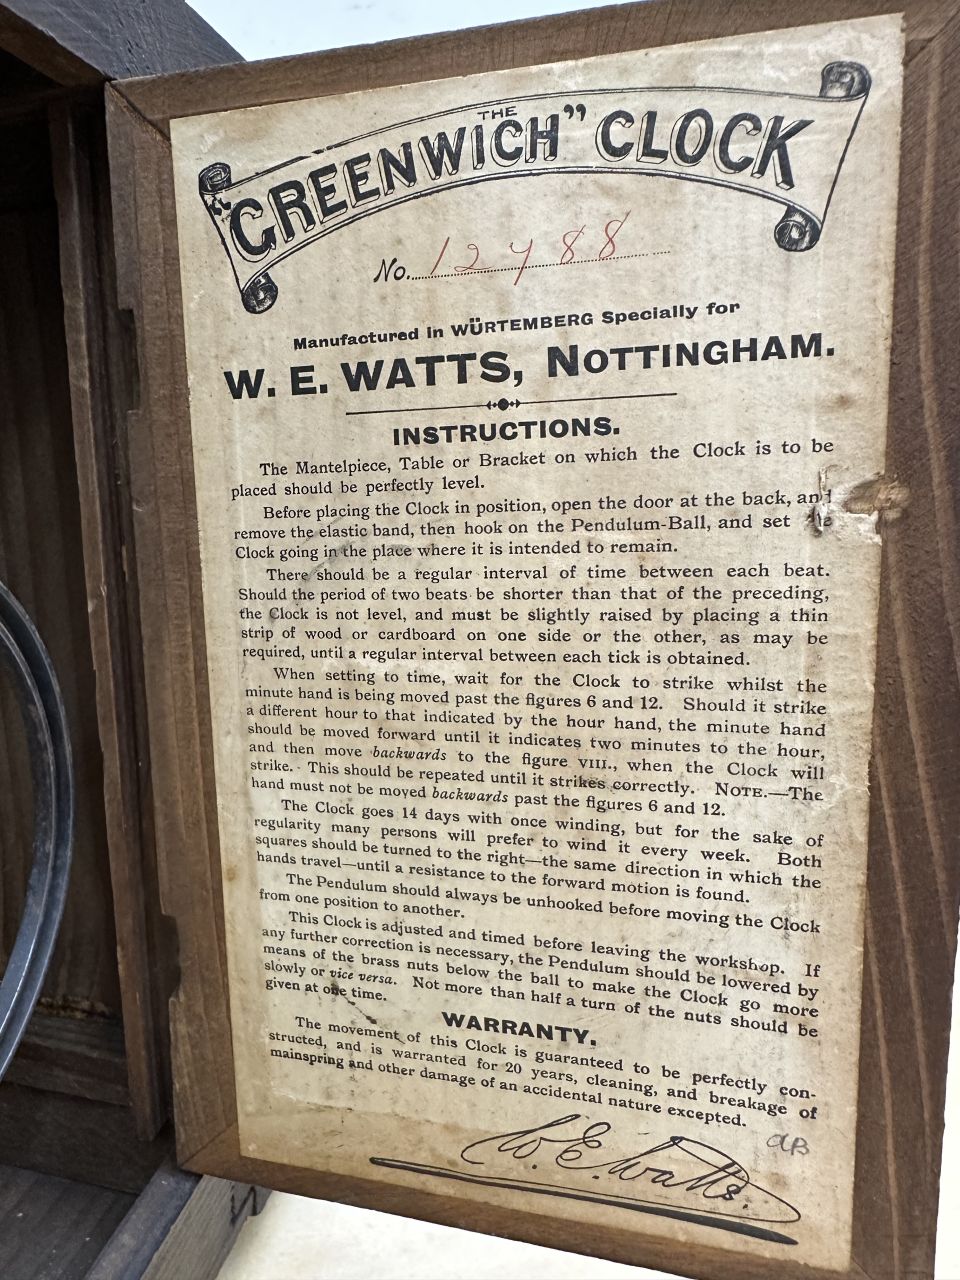 THE
"GREENWICH" CLOCK
No. 12488
Manufactured in WÜRTEMBERG Specially for
W. E. WATTS, NOTTINGHAM.
INSTRUCTIONS.
The Mantelpiece, Table or Bracket on which the Clock is to be
placed should be perfectly level.
Before placing the Clock in position, open the door at the back, and
remove the elastic band, then hook on the Pendulum-Ball, and set the
Clock going in the place where it is intended to remain.
There should be a regular interval of time between each beat.
Should the period of two beats be shorter than that of the preceding,
the Clock is not level, and must be slightly raised by placing a thin
strip of wood or cardboard on one side or the other, as may be
required, until a regular interval between each tick is obtained.
When setting to time, wait for the Clock to strike whilst the
minute hand is being moved past the figures 6 and 12. Should it strike
a different hour to that indicated by the hour hand, the minute hand
should be moved forward until it indicates two minutes to the hour,
and then move backwards to the figure VIII., when the Clock will
strike. This should be repeated until it strikes correctly. NOTE.—The
hand must not be moved backwards past the figures 6 and 12.
The Clock goes 14 days with once winding, but for the sake of
regularity many persons will prefer to wind it every week. Both
squares should be turned to the right—the same direction in which the
hands travel—until a resistance to the forward motion is found.
The Pendulum should always be unhooked before moving the Clock
from one position to another.
This Clock is adjusted and timed before leaving the workshop. If
any further correction is necessary, the Pendulum should be lowered by
means of the brass nuts below the ball to make the Clock go more
slowly or vice versa. Not more than half a turn of the nuts should be
given at one time.
WARRANTY.
The movement of this Clock is guaranteed to be perfectly con-
structed, and is warranted for 20 years, cleaning, and breakage of
mainspring and other damage of an accidental nature excepted.
aB
W. E. Watts.